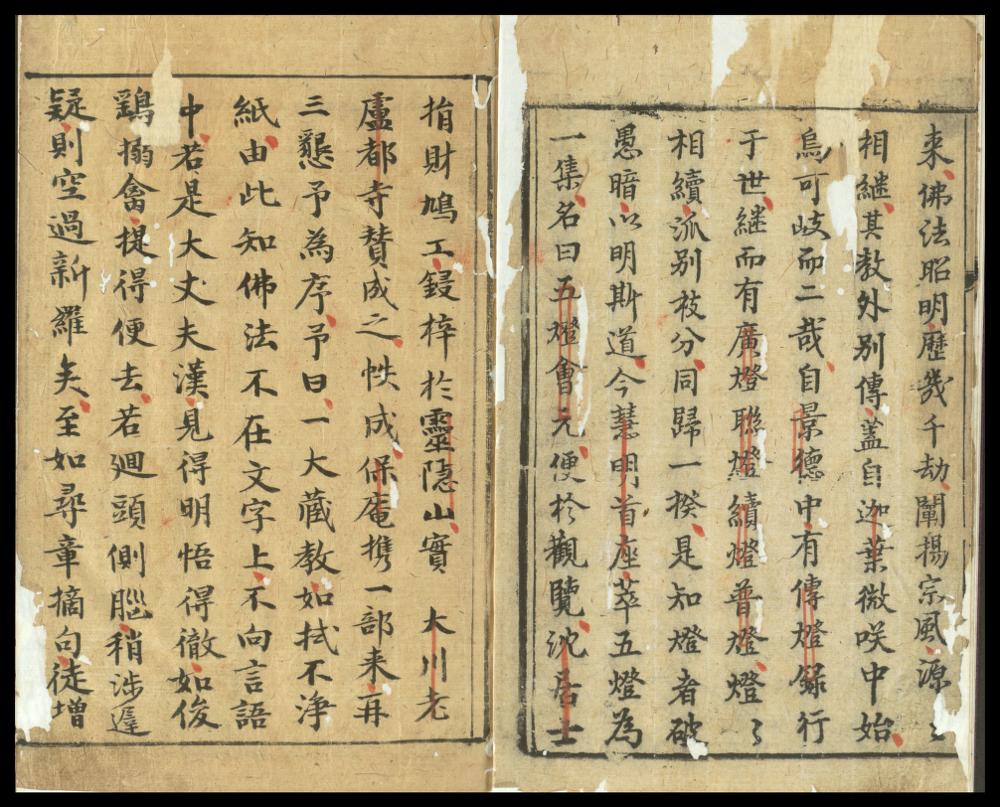 来佛法昭明歷幾千劫闡揚宗風源〻
相継其教外别傳蓋自迦葉微咲中始
烏可岐而二哉自景德中有傳燈録行
于世継而有廣燈聯燈續燈普燈燈〻
相續泒别枝分同歸一揆是知燈者破
愚暗以明斯道今慧明首座萃五燈為
一集名曰五燈會元便於觀覽沈居士
捐財鳩工鋟梓於靈隠山實 大川老
盧都寺賛成之帙成保庵携一部来再
三懇予為序予曰一大蔵教如拭不浄
紙由此知佛法不在文字上不向言語
中若是大丈夫漢見得明悟得徹如俊
鷂搦禽提得便去若廻頭側腦稍涉遲
疑則空過新羅矣至如尋章摘句徒增